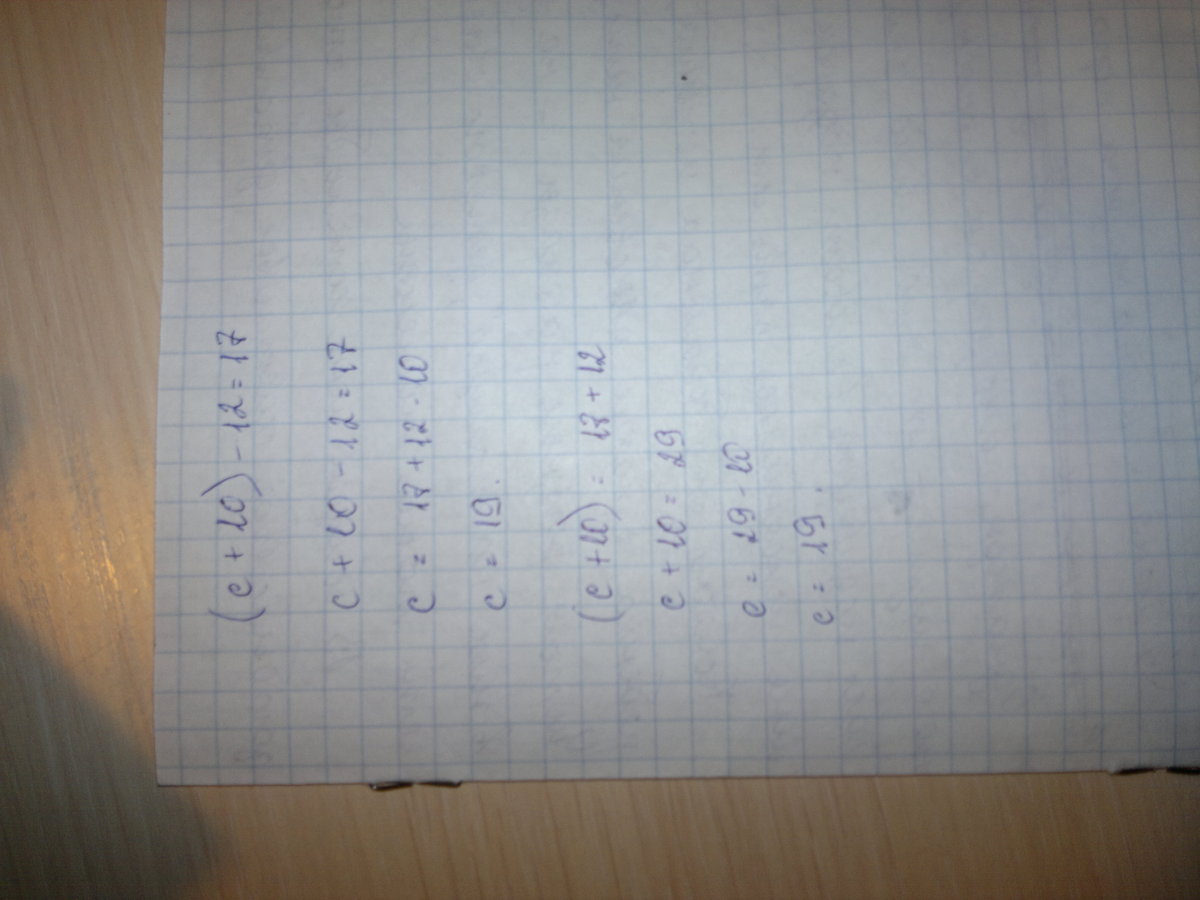 (c + 10) - 12 = 17
c + 10 - 12 = 17
c = 17 + 12 - 10
c = 19.
(c + 10) = 17 + 12
c + 10 = 29
c = 29 - 10
c = 19.